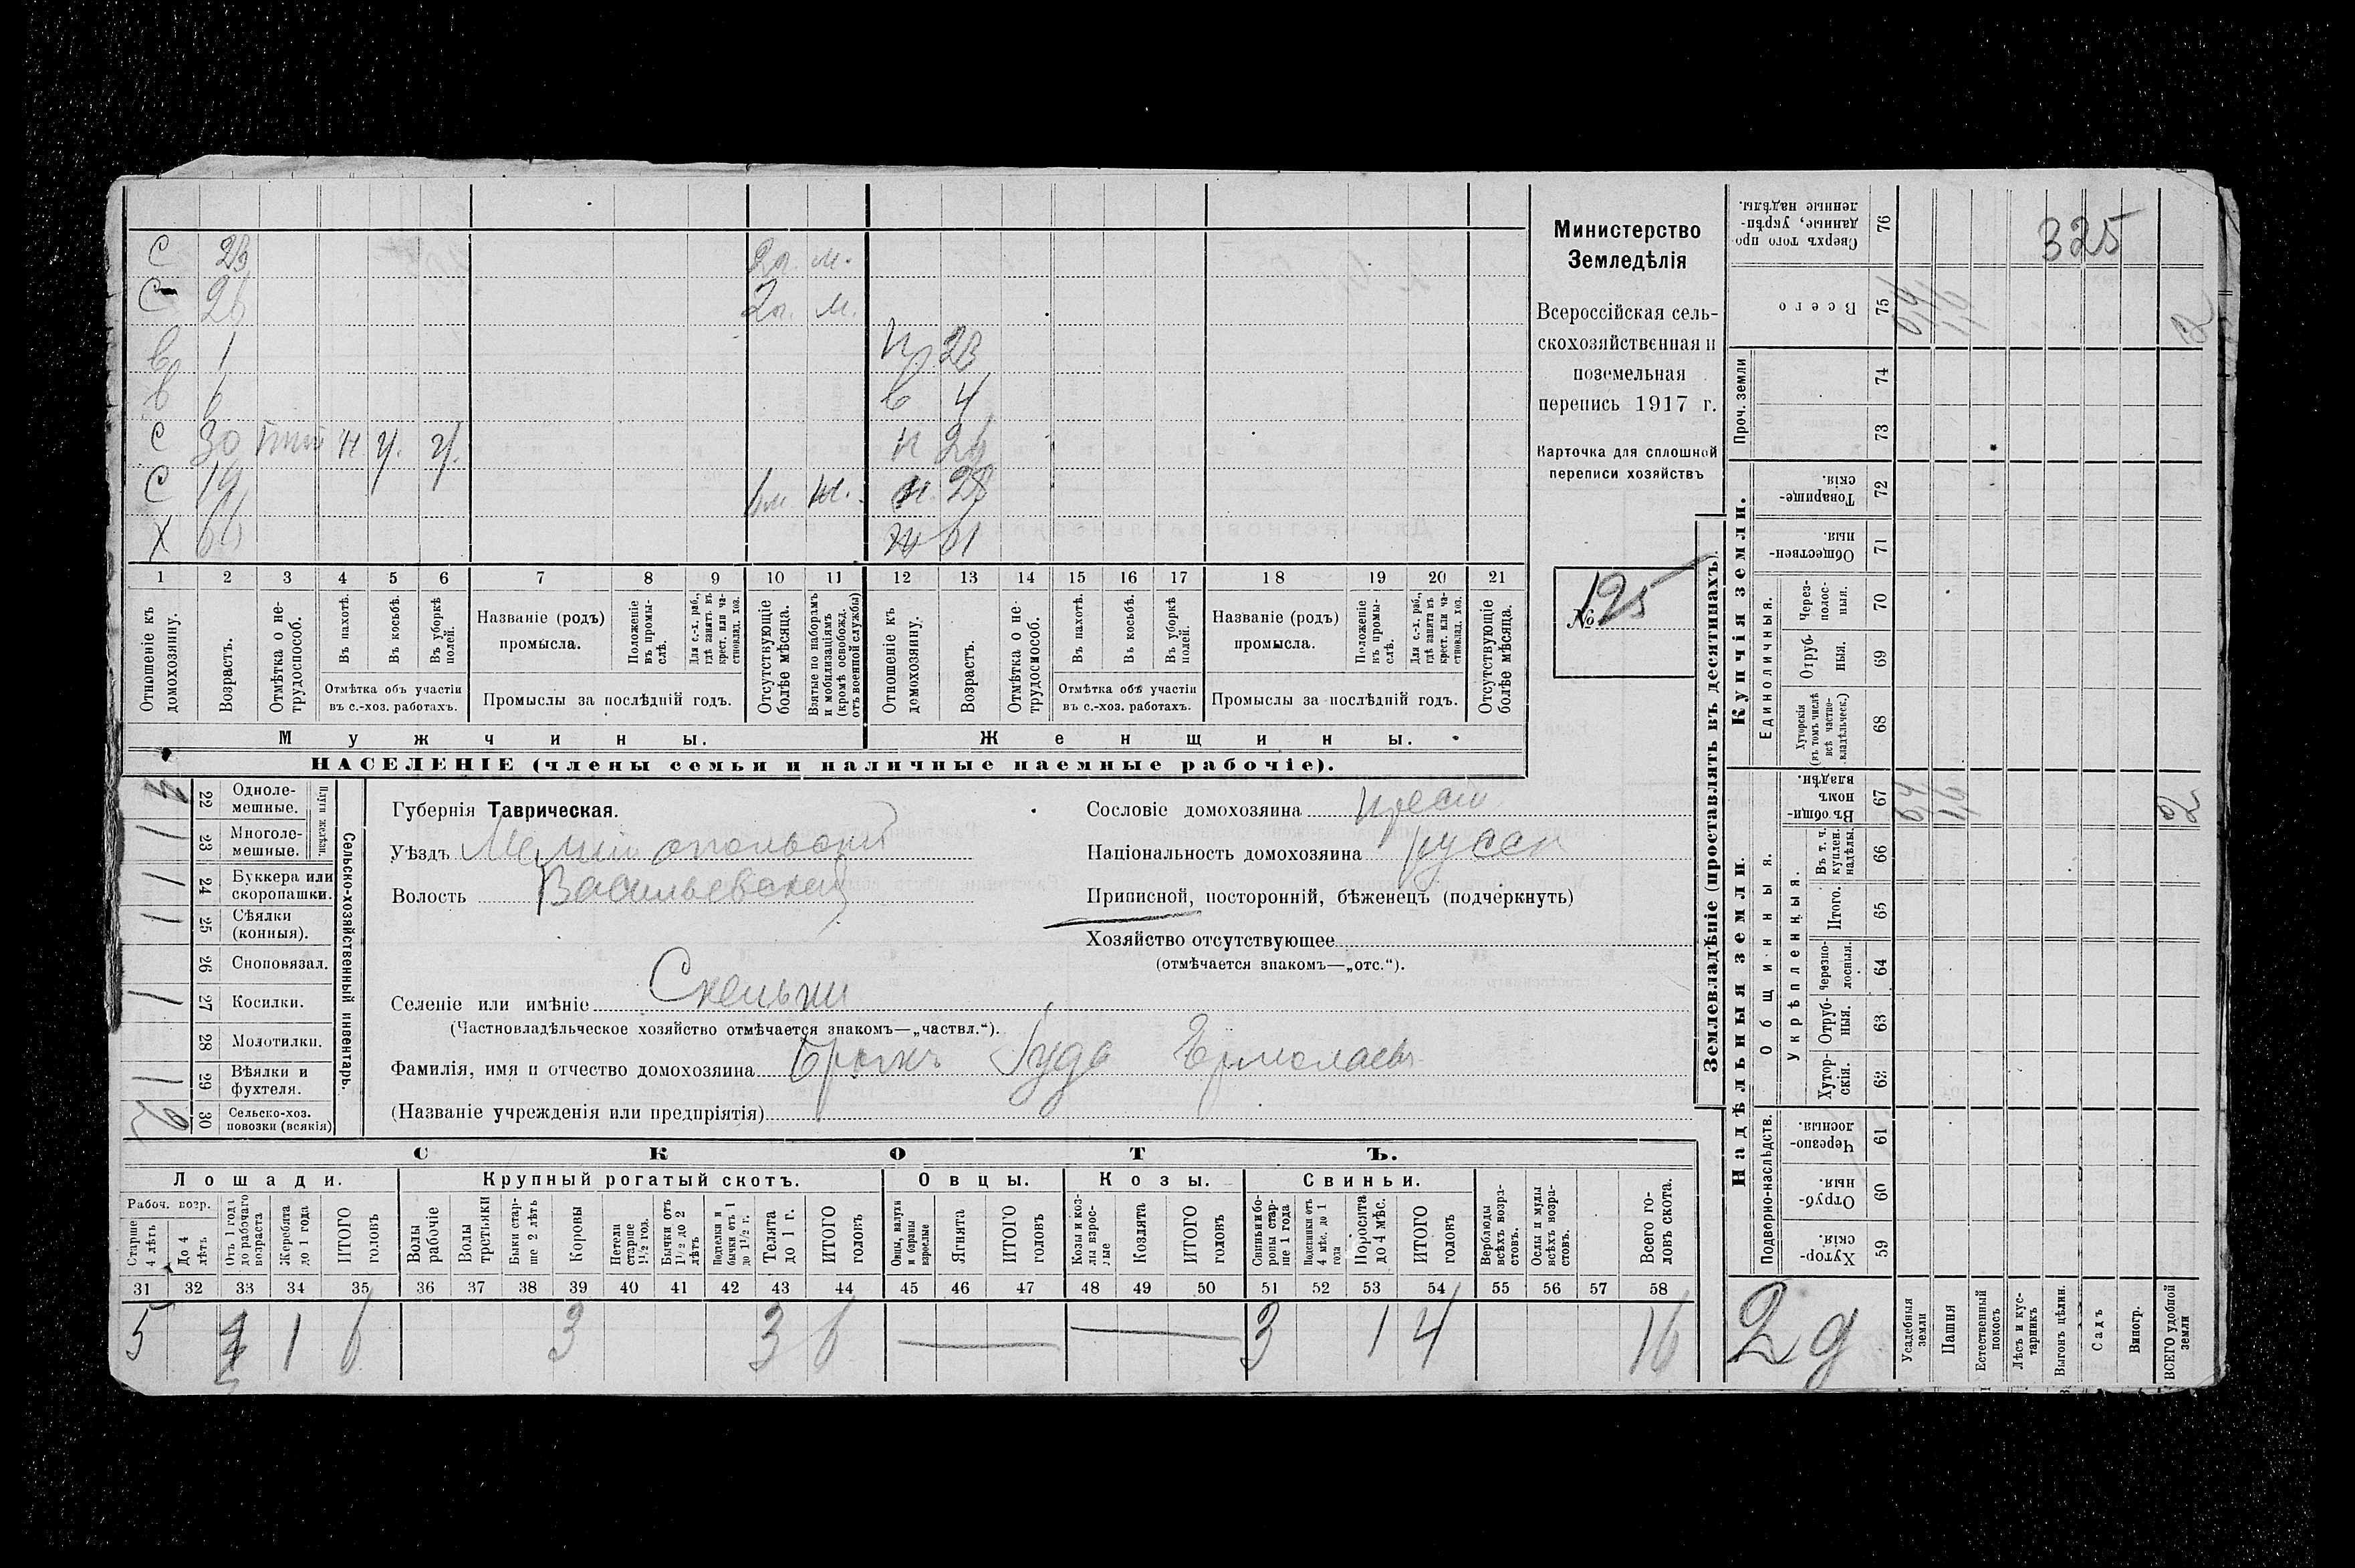 С 23 2 г. м.
С 26 2 г. м.
в 1 н 23
в 6 в 4
С 30 н у. у. н 26
С 19 м. н. 28
Х 66 ж 61
1 2 3 4 5 6 7 8 9 10 11 12 13 14 15 16 17 18 19 20 21
Отношеніе къ домохозяину.
Возрастъ.
Отмѣтка о нетрудоспособ.
Въ пахотѣ.
Въ косьбѣ.
Въ уборкѣ полей.
Отмѣтка объ участіи въ с.-хоз. работахъ.
Названіе (родъ) промысла.
Положеніе въ промыслѣ.
Для с.-х. раб., гдѣ занятъ въ крест. или частновлад. хоз.
Промыслы за послѣдній годъ.
Отсутствующіе болѣе мѣсяца.
Взятые по наборамъ и мобилизаціямъ (кромѣ освобожд. отъ военной службы)
Отношеніе къ домохозяину.
Возрастъ.
Отмѣтка о нетрудоспособ.
Въ пахотѣ.
Въ косьбѣ.
Въ уборкѣ полей.
Отмѣтка объ участіи въ с.-хоз. работахъ.
Названіе (родъ) промысла.
Положеніе въ промыслѣ.
Для с.-х. раб., гдѣ занятъ въ крест. или частновлад. хоз.
Промыслы за послѣдній годъ.
Отсутствующіе болѣе мѣсяца.
Мужчины. Женщины.
НАСЕЛЕНІЕ (члены семьи и наличные наемные рабочіе).
Министерство
Земледѣлія
Всероссійская сель-
скохозяйственная и
поземельная
перепись 1917 г.
Карточка для сплошной
переписи хозяйствъ
№ 125
22 Однолемешные.
1 23 Многолемешные.
Плуги желѣзн.
1 24 Буккера или скоропашки.
1 25 Сѣялки (конныя).
26 Сноповязал.
1 27 Косилки.
28 Молотилки.
1 29 Вѣялки и фухтеля.
2 30 Сельско-хоз. повозки (всякія)
Сельско-хозяйственный инвентарь.
Губернія Таврическая.
Уѣздъ Мелитопольскій
Волость Васильевская
Селеніе или имѣніе Скельки
(Частновладѣльческое хозяйство отмѣчается знакомъ—„частвл.“).
Фамилія, имя и отчество домохозяина Брыкъ Іуда Ермолаевъ
(Названіе учрежденія или предпріятія)
Сословіе домохозяина крест
Національность домохозяина русск
Приписной, посторонній, бѣженецъ (подчеркнуть)
Хозяйство отсутствующее
(отмѣчается знакомъ—„отс.“).
СКОТЪ.
Лошади. Крупный рогатый скотъ. Овцы. Козы. Свиньи.
Рабоч. возр.
Старше 4 лѣтъ
До 4 лѣтъ
Отъ 1 года до рабочаго возраста
Жеребята до 1 года
ИТОГО головъ
Волы рабочіе
Волы третьяки
Быки старше 2 лѣтъ
Коровы
Нетели старше 1½ год.
Бычки отъ 1½ до 2 лѣтъ
Подтелки и бычки отъ 1 до 1½ г.
Телята до 1 г.
ИТОГО головъ
Овцы, валухи и бараны взрослые
Ягнята
ИТОГО головъ
Козы и козлы взрослые
Козлята
ИТОГО головъ
Свиньи и боровы старше 1 года
Подсвинки отъ 4 мѣс. до 1 года
Поросята до 4 мѣс.
ИТОГО головъ
Верблюды всѣхъ возрастовъ.
Ослы и мулы всѣхъ возрастовъ.
Всего головъ скота.
31 32 33 34 35 36 37 38 39 40 41 42 43 44 45 46 47 48 49 50 51 52 53 54 55 56 57 58
5 1 6 3 3 6 — — 3 1 4 16
Землевладѣніе (проставлять въ десятинахъ).
Надѣльныя земли. Купчія земли.
Проч. земли
Подворно-наслѣдств.
Общинныя.
Укрѣпленныя.
Единоличныя.
76 Сверхъ того проданные, укрѣпленные надѣлы.
325
75 Всего
74
73
72 Товарищескія.
71 Общественныя.
70 Черезполосныя.
69 Отрубныя.
68 Хуторскія (въ томъ числѣ всѣ частновладѣльческ.)
67 Въ общинномъ владѣн.
66 Въ т. ч. куплен. надѣлы
65 Итого.
64 Черезполосныя.
63 Отрубныя.
62 Хуторскія.
61 Черезполосныя.
60 Отрубныя.
59 Хуторскія.
2 д
Усадебныя земли
Пашня
Естественный покосъ
Лѣсъ и кустарникъ
Выгонъ цѣлин.
Садъ
Виногр.
ВСЕГО удобной земли